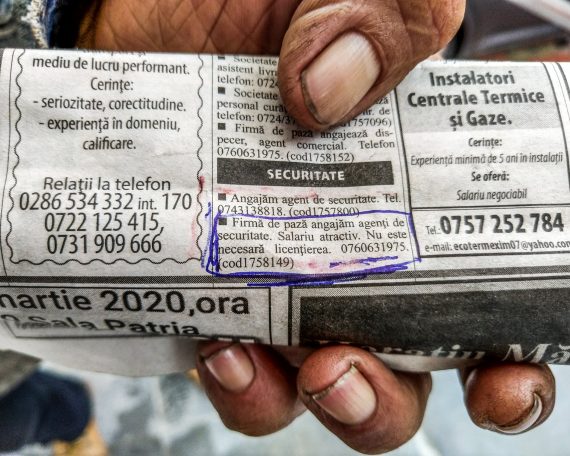 mediu de lucru performant.
Cerințe:
- seriozitate, corectitudine.
- experiență în domeniu,
calificare.
Relații la telefon
0286 534 332 int. 170
0722 125 415,
0731 909 666
Societate
asistent
telefon: 0724
Societate
personal
telefon:
Firmă de pază angajează dis-
pecer, agent comercial. Telefon
0760631975. (cod1758152)
SECURITATE
■ Angajăm agent de securitate. Tel.
0743138818. (cod1757800)
■ Firmă de pază angajăm agenți de
securitate. Salariu atractiv. Nu este
necesară licențierea. 0760631975.
(cod1758149)
Instalatori
Centrale Termice
și Gaze.
Cerințe:
Experiență minimă de 5 ani în instalații
Se oferă:
Salariu negociabil
Tel. 0757 252 784
e-mail: ecotermexim07@yahoo.com
martie 2020,ora
Sala Patria